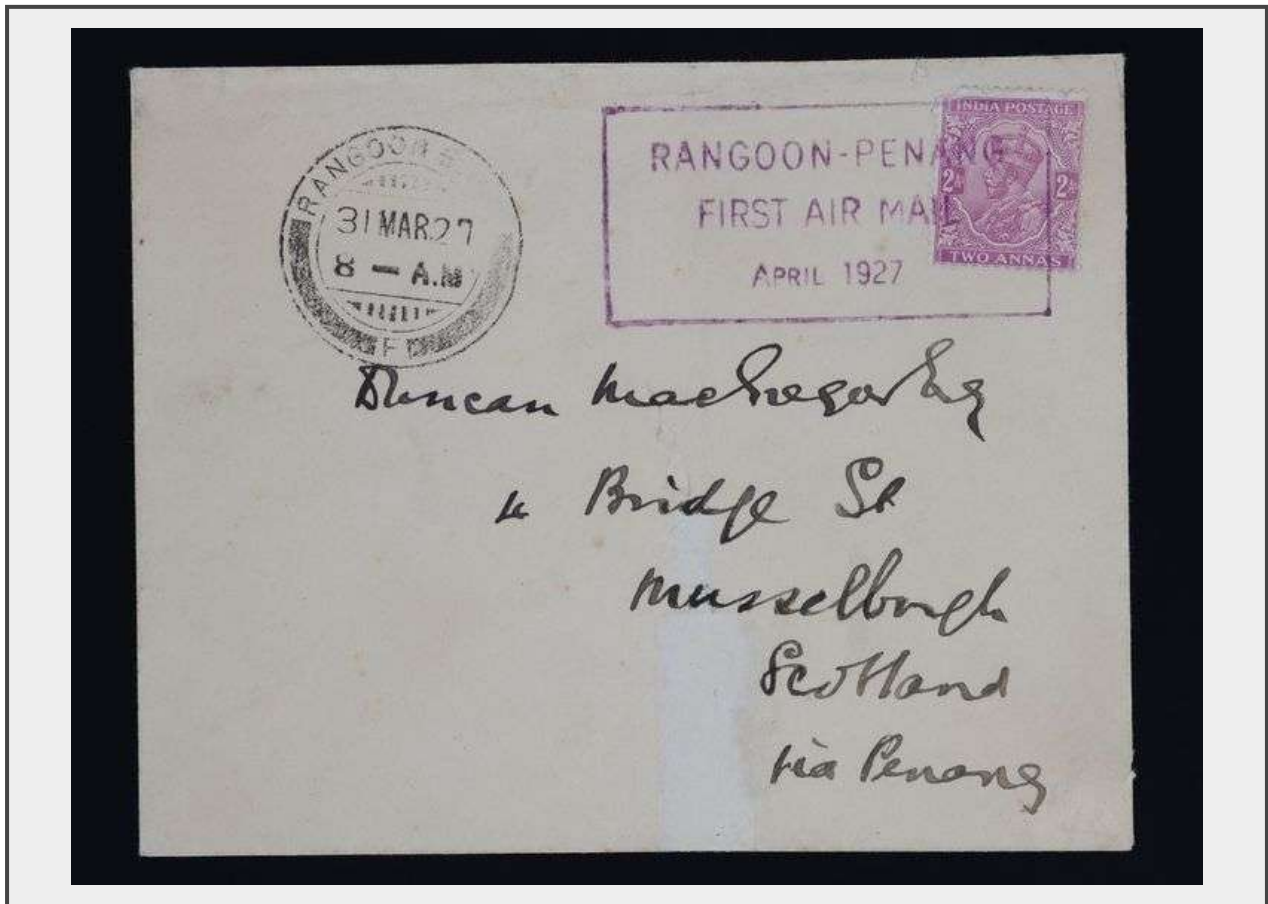 RANGOON
31 MAR.27
8 — A.M
RANGOON-PENANG
FIRST AIR MAIL
APRIL 1927
INDIA POSTAGE
2 2
TWO ANNAS
Duncan MacGregor Esq
Bridge St
Musselburgh
Scotland
via Penang